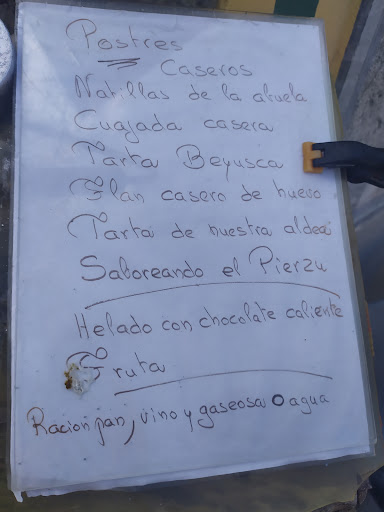 Postres
Caseros
Natillas de la abuela
Cuajada casera
Tarta Beyusca
Flan casero de huevo
Tarta de nuestra aldea
Saboreando el Pierzu
Helado con chocolate caliente
Fruta
Racion pan, vino y gaseosa O agua